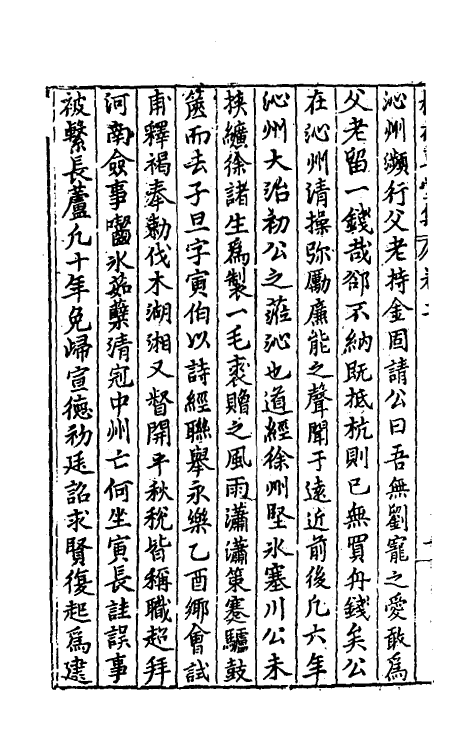 沁州瀕行父老持金固請公曰吾無劉寵之愛敢為
父老留一錢哉郤不納既抵杭則已無買舟錢矣公
在沁州清操弥勵廉能之聲聞于遠近前後凢六年
沁州大治初公之蒞沁也道經徐州堅氷塞川公未
挾纊徐諸生為製一毛裘贈之風雨瀟瀟策蹇驢鼓
篋而去子旦字寅伯以詩經聯舉永樂乙酉鄉會試
甫釋褐奉勅伐木湖湘又督開平秋稅皆稱職超拜
河南僉事囓氷茹蘗清冠中州亡何坐寅長詿誤事
被繫長蘆凢十年免歸宣德初廷詔求賢復起為建